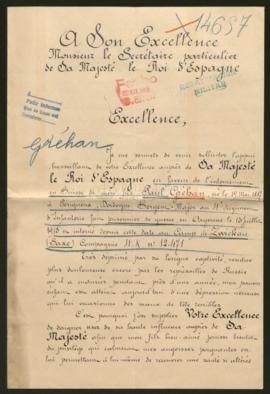 14697
A Son Excellence
Monsieur le Secrétaire particulier
de Sa Majesté le Roi d'Espagne
Excellence,
Gréhan
Je me permets de venir solliciter l'appui
bienveillant de votre Excellence auprès de Sa Majesté
le Roi d'Espagne en faveur de l'internement
en Suisse de mon fils Paul Gréhan, né le 1er Mai 1887
à Dordogne, Sergent-Major au
d'Infanterie fait prisonnier de guerre en Argonne le 13 juillet
1915 et interné depuis cette date au Camp de Zwickau
(Saxe) Compagnie 11.K n° 12.471
Très déprimé par sa longue captivité, rendue
plus douloureuse encore par les représailles de Russie
qu'il a endurées pendant près d'une année, mon pauvre
enfant est atteint aujourd'hui d'une dépression nerveuse
qui lui occasionne des maux de tête terribles.
C'est pourquoi j'ose supplier Votre Excellence
de daigner user de sa haute influence auprès de Sa
Majesté afin que mon fils bien aimé puisse bénéficier
du privilège qui calmerait mes angoisses poignantes en
lui permettant à lui-même de recouvrer une santé si altérée